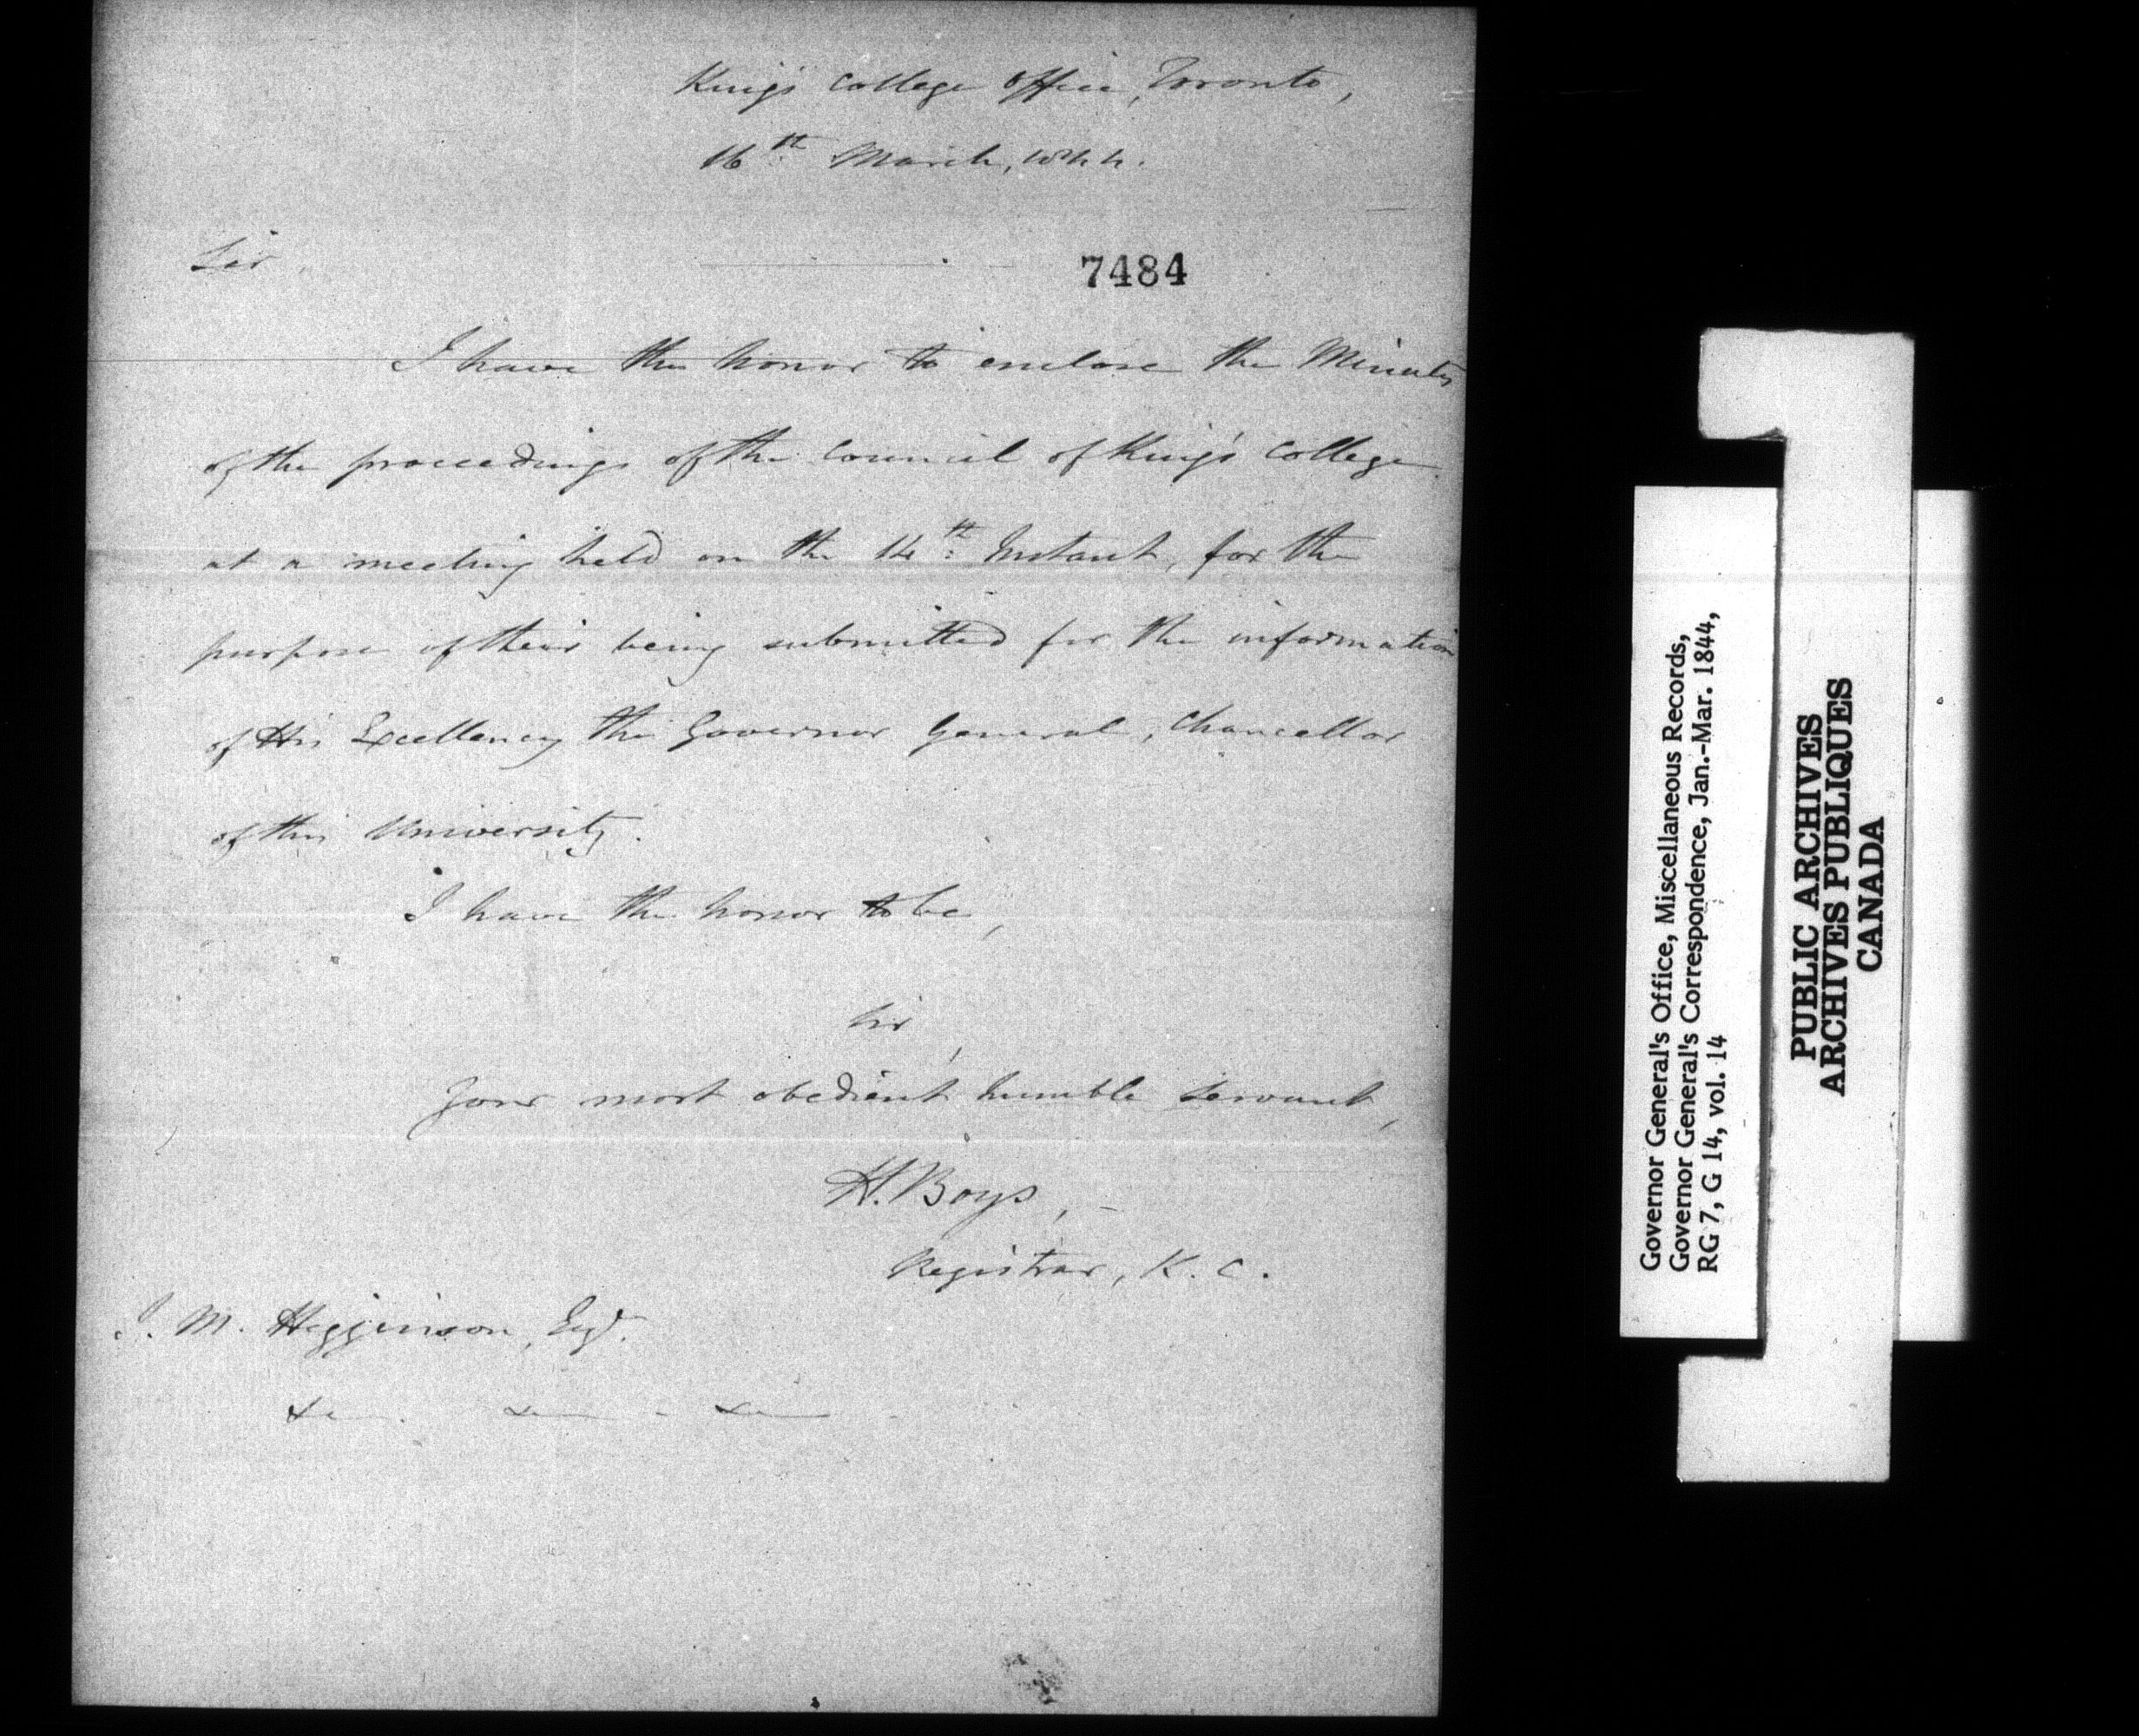 King's College Office, Toronto,
16th March, 1844.
Sir,
7484
I have the honor to enclose the Minutes
of the proceedings of the Council of King's College
at a meeting held on the 14th Instant, for the
purpose of their being submitted for the information
of His Excellency the Governor General, Chancellor
of this University.
I have the honor to be,
Sir,
Your most obedient humble servant,
H. Boys,
Registrar, K. C.
J. M. Higginson, Esqr.
&c. &c. &c.
Governor General's Office, Miscellaneous Records,
Governor General's Correspondence, Jan.-Mar. 1844,
RG 7, G 14, vol. 14
PUBLIC ARCHIVES
ARCHIVES PUBLIQUES
CANADA